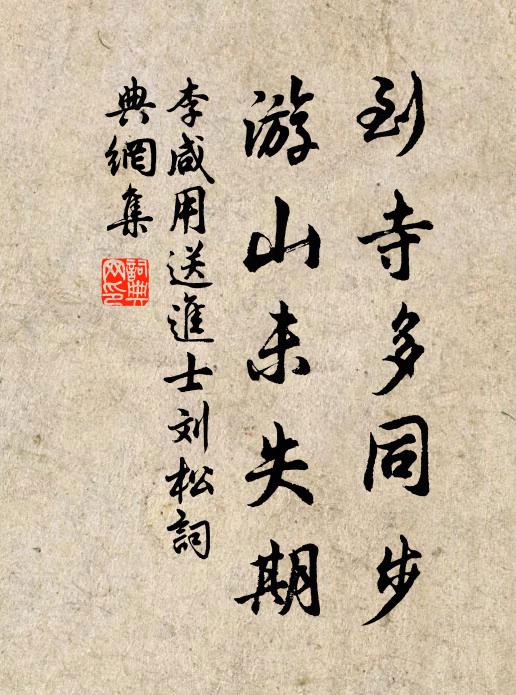 到寺多同步
游山未失期
李咸用送進士刘松詞
典網集
詞典
网印